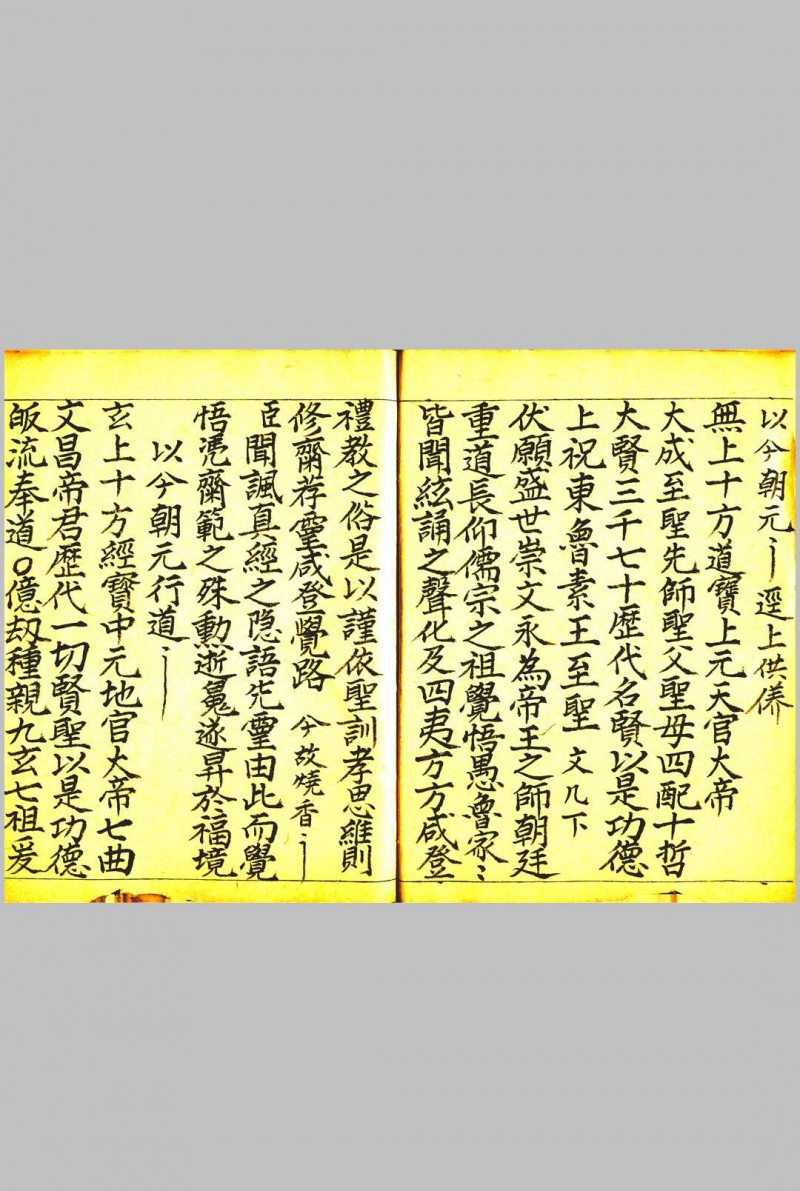 以今朝元〻逕上供养
無上十方道寶上元天官大帝
大成至聖先師聖父聖母四配十哲
大賢三千七十歷代名賢以是功德
上祝東魯素王至聖 文几下
伏願盛世崇文永為帝王之師朝廷
重道長仰儒宗之祖覺悟愚魯家〻
皆聞絃誦之聲化及四夷方方咸登
禮教之俗是以謹依聖訓孝思維則
修齋荐靈咸登覺路 今故燒香〻
臣聞諷真經之隐語先靈由此而覺
悟凴齋範之殊勳逝䰟遂昇於福境
以今朝元行道〻
玄上十方經寶中元地官大帝七曲
文昌帝君歷代一切賢聖以是功德
皈流奉道〇億刧種親九玄七祖爰